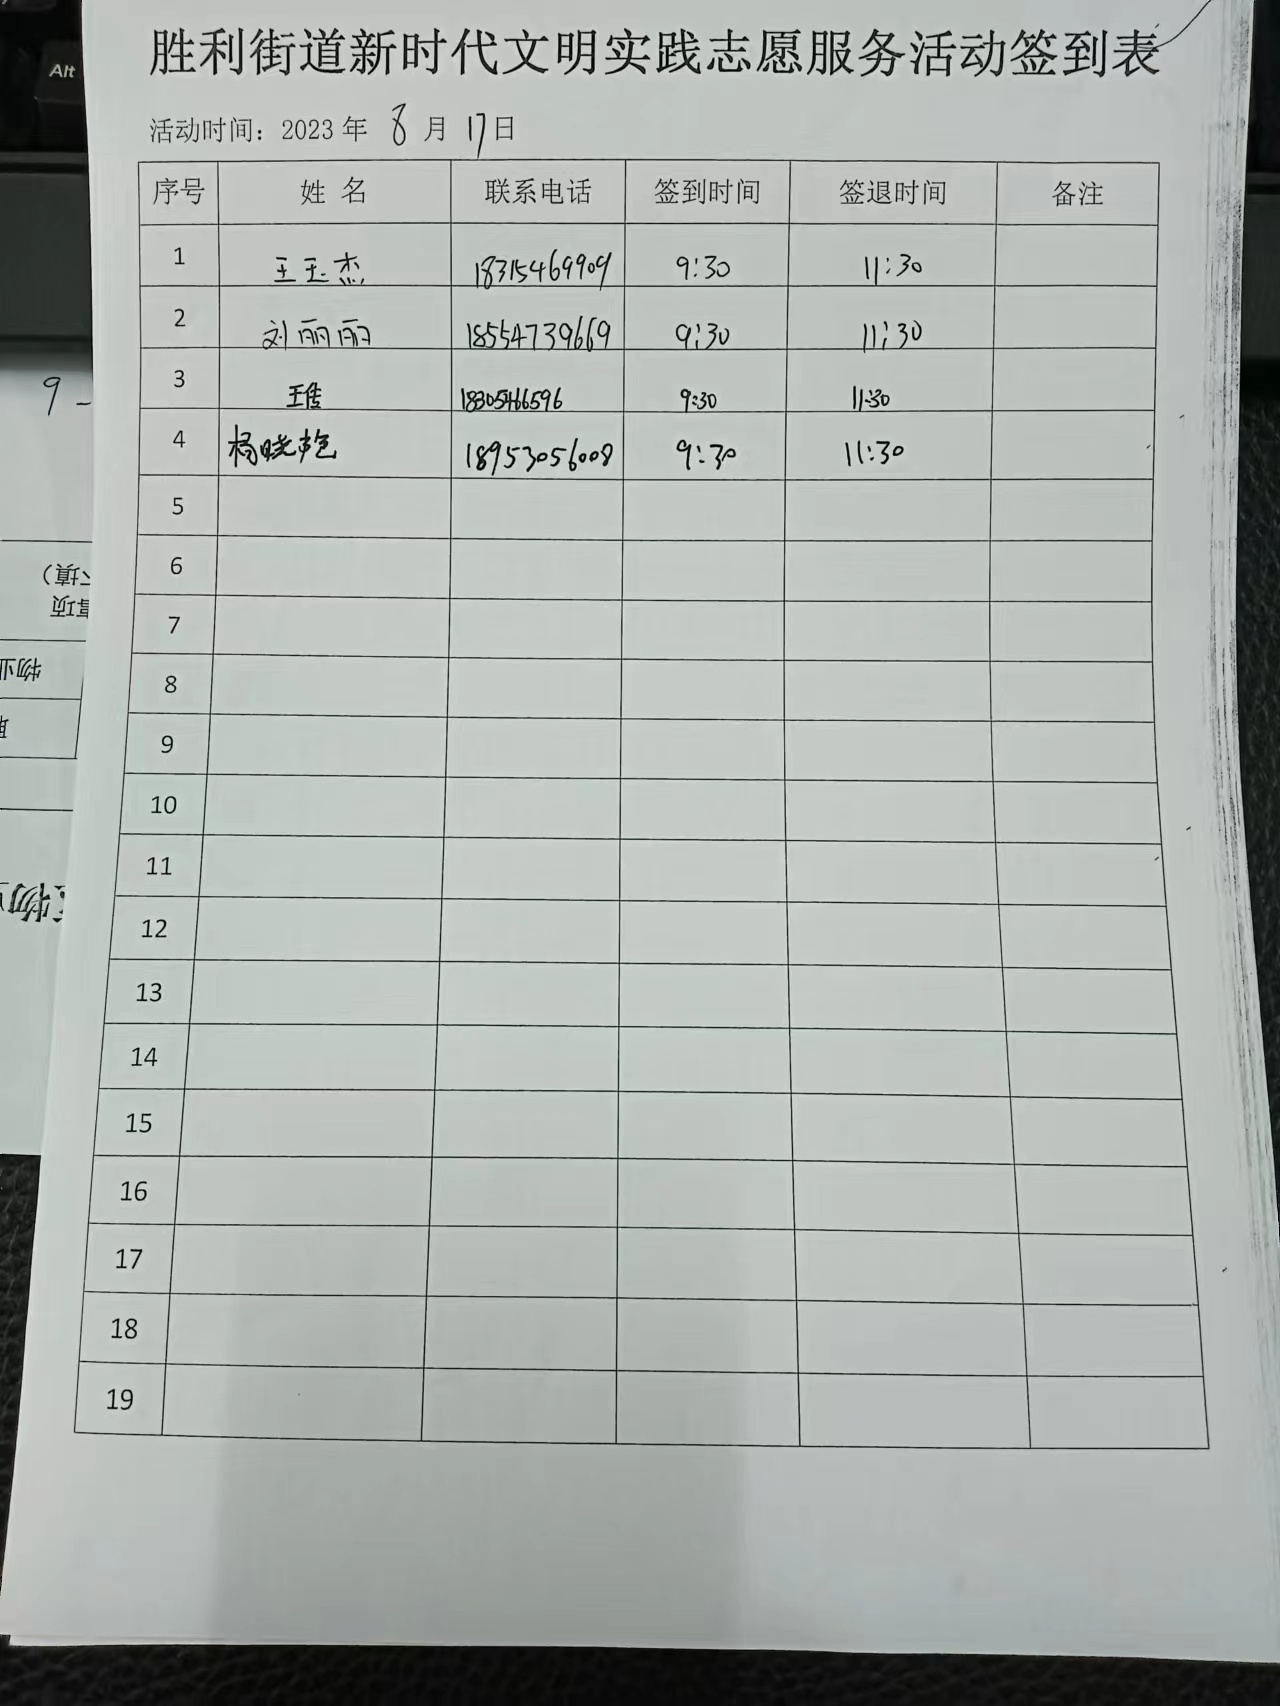 Alt
胜利街道新时代文明实践志愿服务活动签到表
活动时间：2023 年 8 月 17 日
序号 姓 名 联系电话 签到时间 签退时间 备注
1 王玉杰 18315469909 9:30 11:30
2 刘丽丽 18554739669 9:30 11:30
3 王佳 18305466596 9:30 11:30
4 杨晓艳 18953056008 9:30 11:30
5
6
7
8
9
10
11
12
13
14
15
16
17
18
19
9 -
填）
项
物业
物